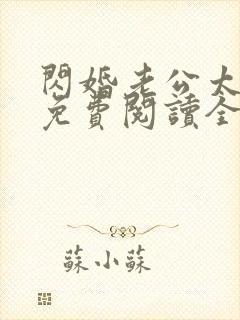 閃婚老公大
免費閱讀全
蘇小蘇